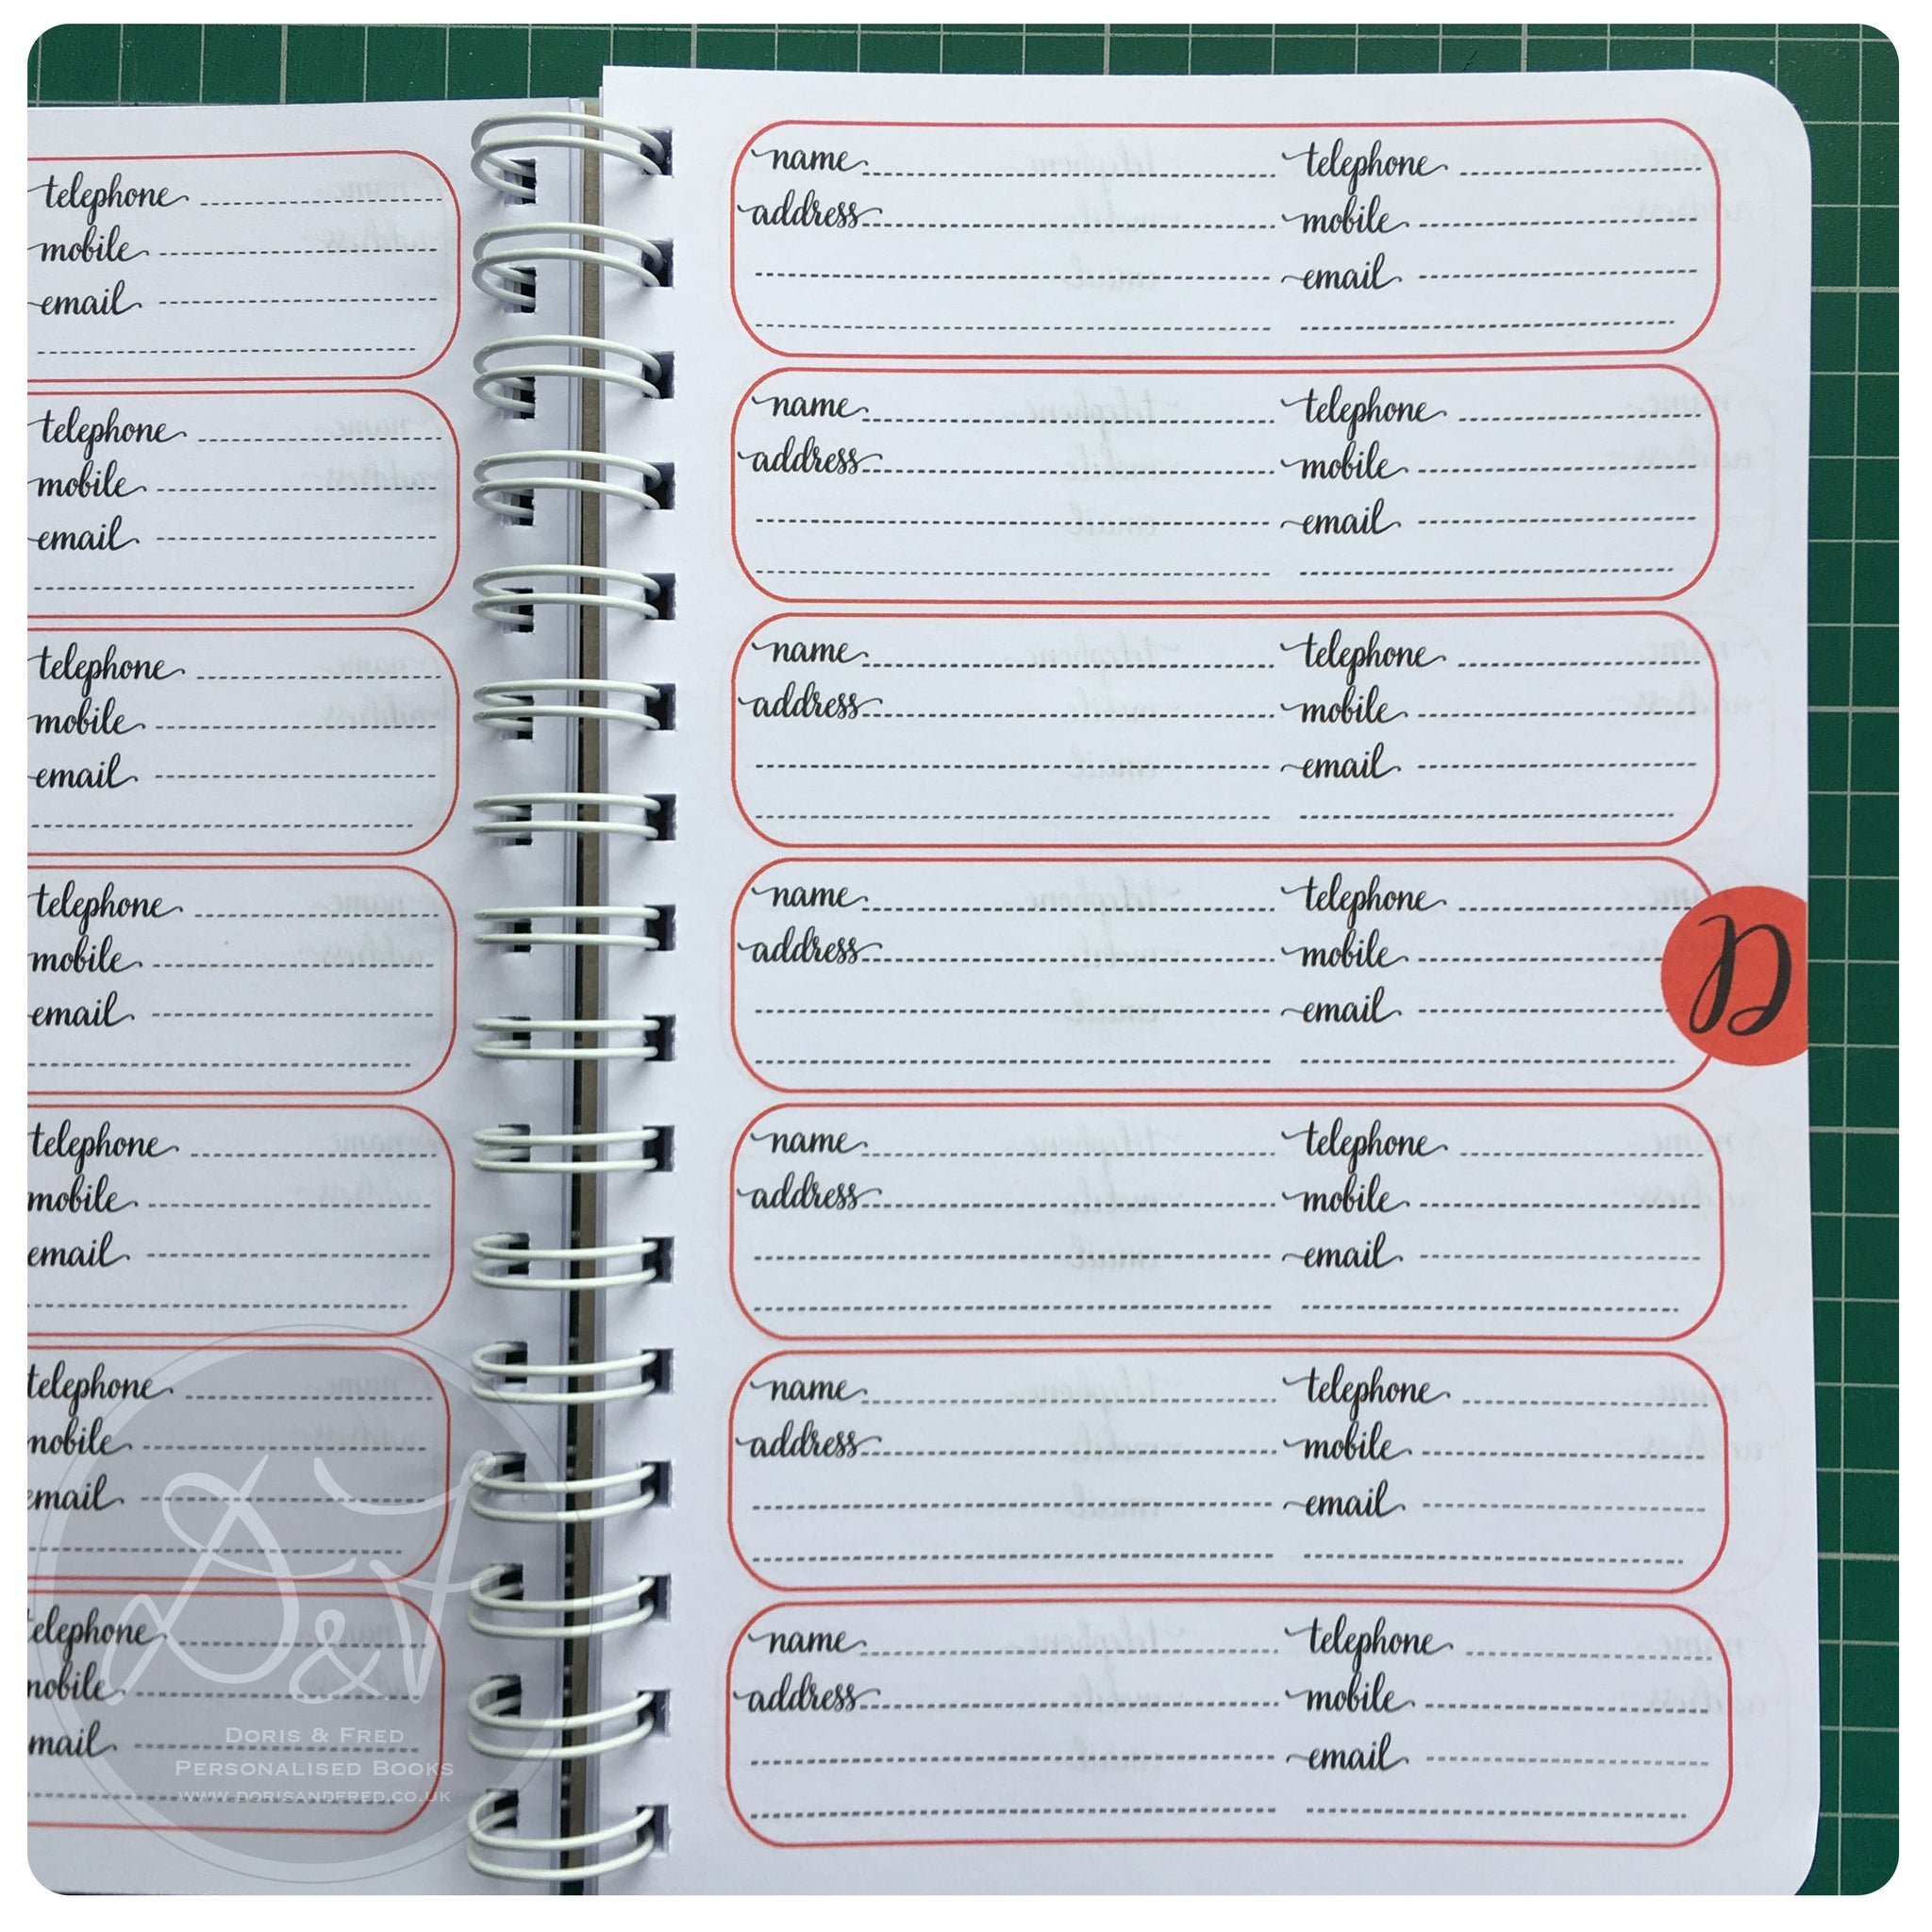 telephone
mobile
email
telephone
mobile
email
telephone
mobile
email
telephone
mobile
email
telephone
mobile
email
telephone
mobile
email
telephone
mobile
email
D&F
Doris & Fred
Personalised Books
www.dorisandfred.co.uk
name telephone
address mobile
email
name telephone
address mobile
email
name telephone
address mobile
email
name telephone
address mobile
email
D
name telephone
address mobile
email
name telephone
address mobile
email
name telephone
address mobile
email